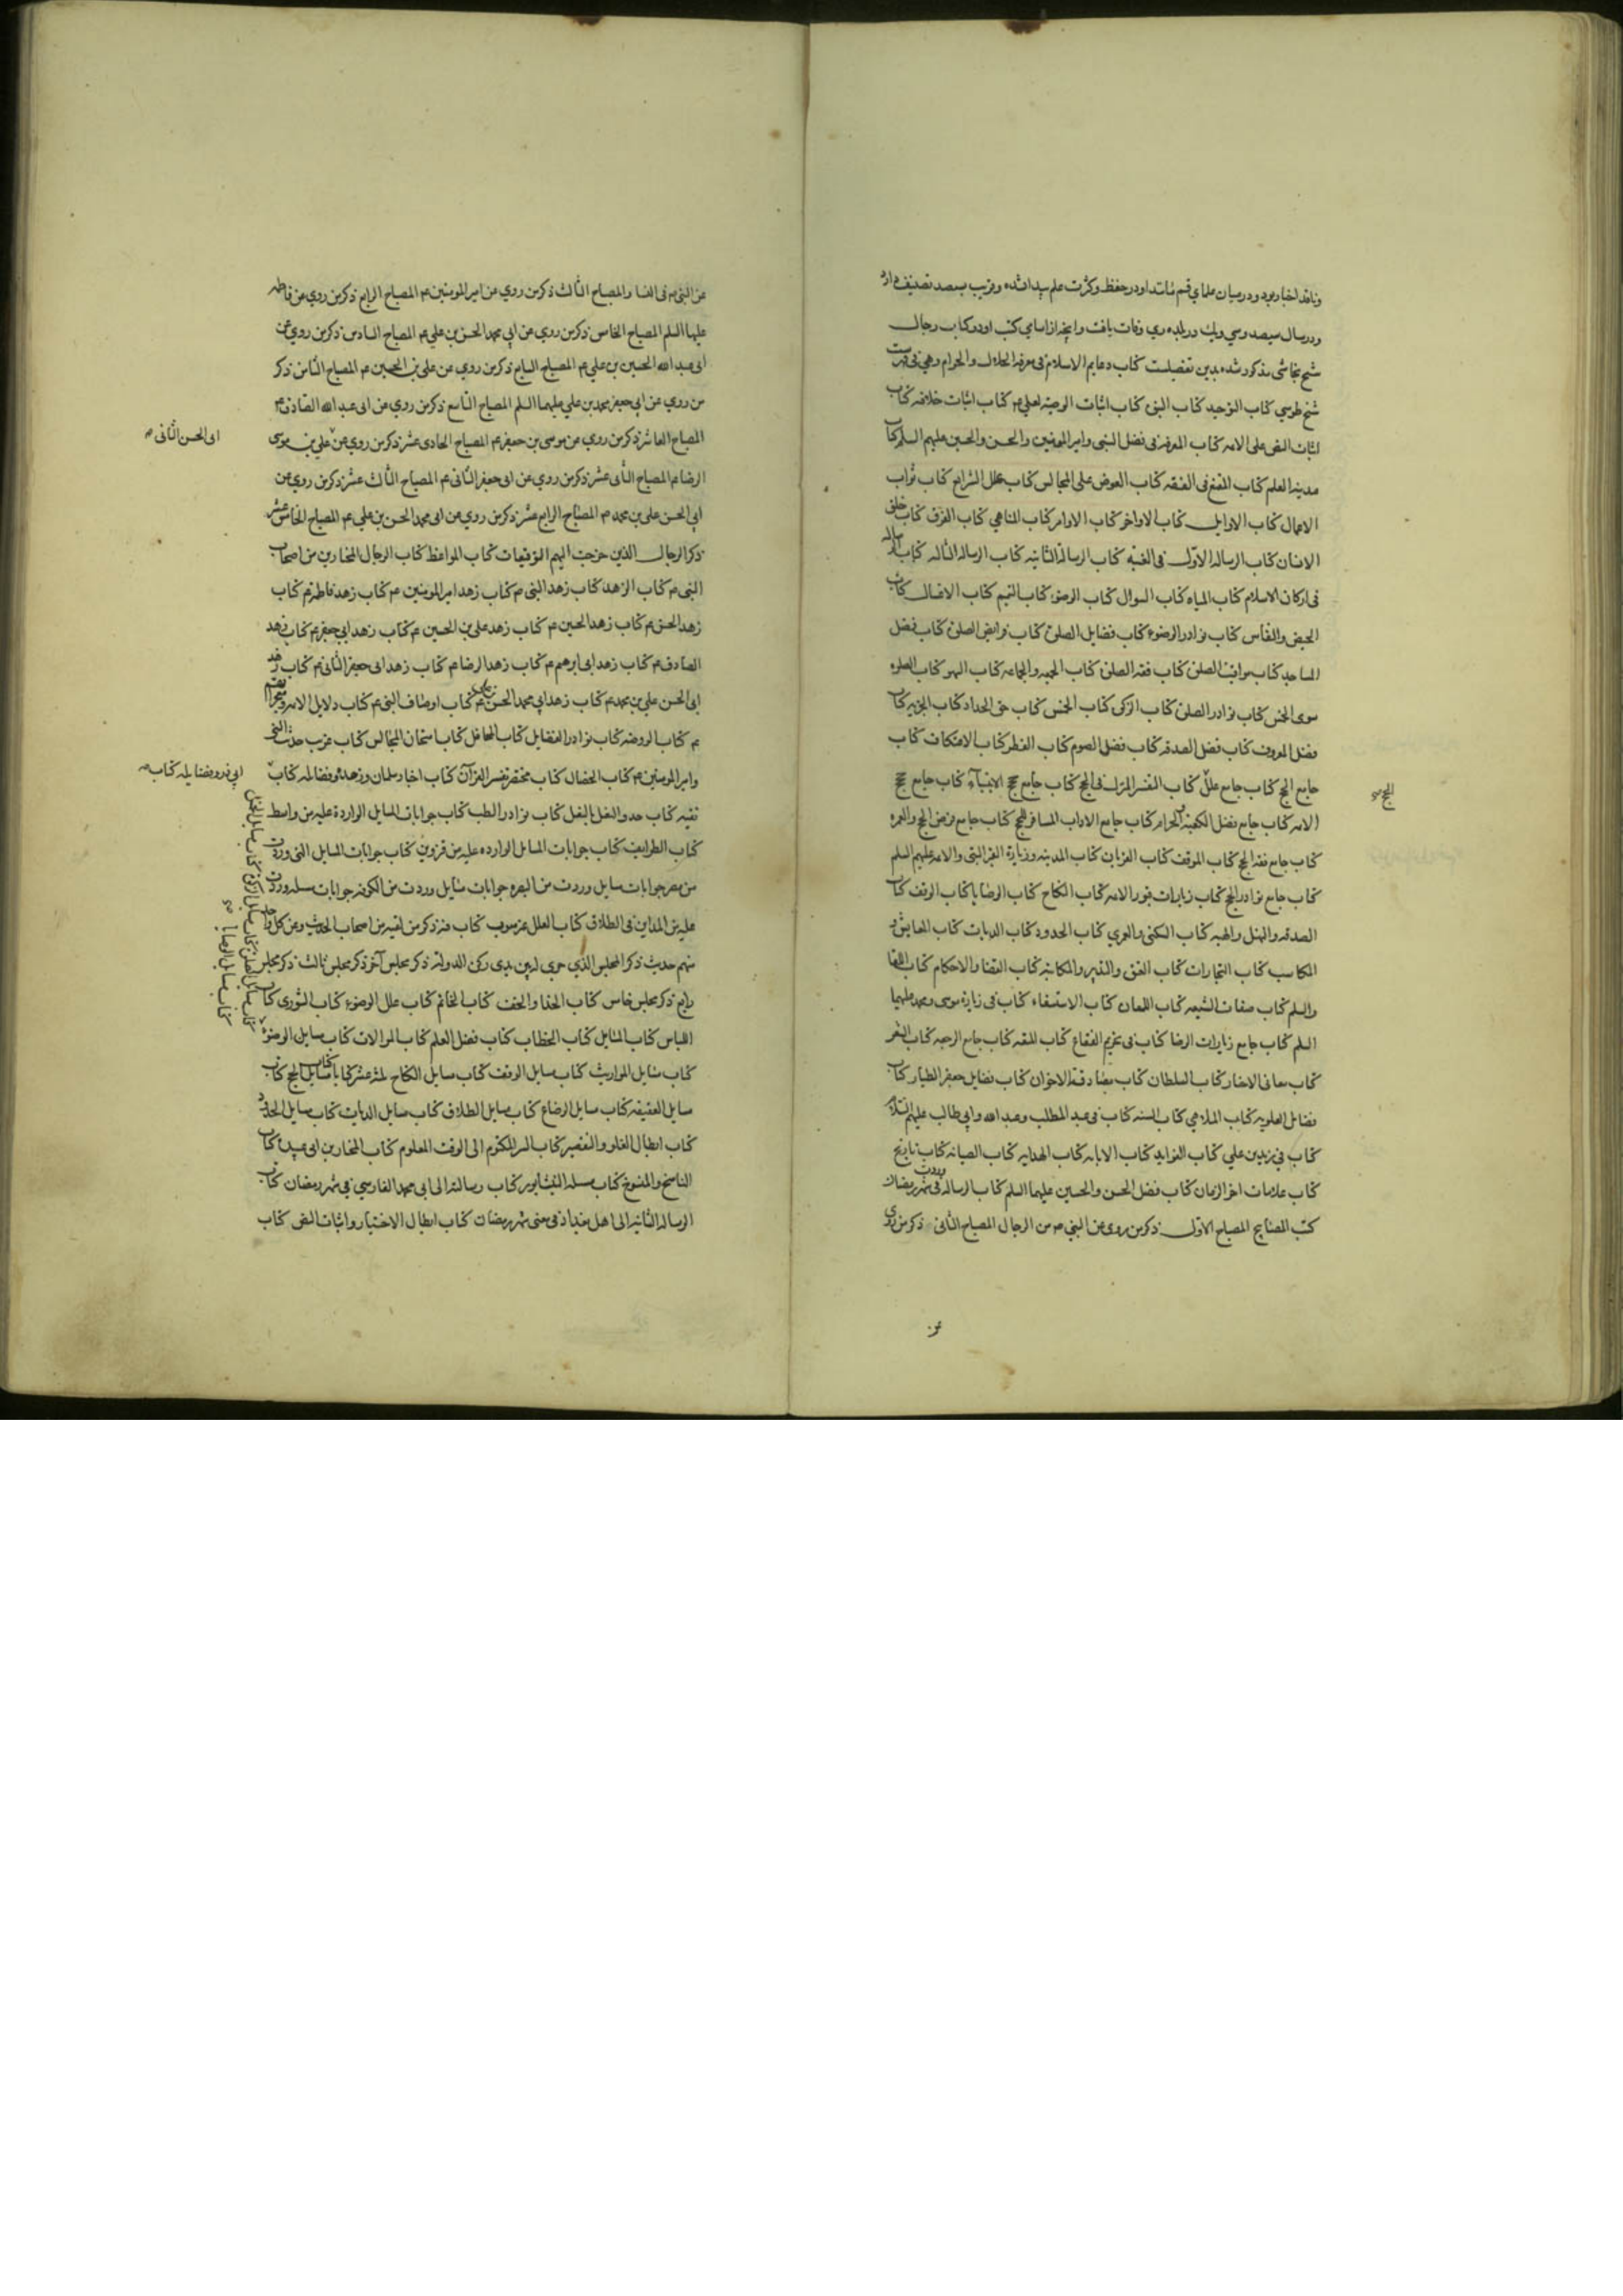 و ناقد اخبار بود و در میان علمای قم مانند او در حفظ و کثرت علم پیدا نشده و قریب بسیصد تصنیف دارد
و در سال سیصد و سی و یک در بلده ری وفات یافت و اینچه از اسامی کتب او در کتاب رجال
شیخ نجاشی مذکور شده بدین تفصیلست کتاب دعایم الاسلام فی معرفة الحلال و الحرام و هی فی فهرست
شیخ طوسی کتاب التوحید کتاب النبی کتاب اثبات الوصیة لعلی ع کتاب اثبات خلافته کتاب
اثبات النص علی الائمه کتاب المعرفه فی فضل النبی و امیر المومنین و الحسن و الحسین علیهم السلم کتاب
مدینه العلم کتاب المقنع فی الفقه کتاب العوض علی المجالس کتاب علل الشرایع کتاب ثواب
الاعمال کتاب الاوایل کتاب الاواخر کتاب الاوامر کتاب المناهی کتاب الفرق کتاب خلق
الانسان کتاب الرساله الاولی فی الغیبه کتاب الرسالة الثانیه کتاب الرساله الثالثه کتاب رساله
فی ارکان الاسلام کتاب المیاه کتاب السوال کتاب الوضوء کتاب التیمم کتاب الاغسال کتاب
الحیض و النفاس کتاب نوادر الوضوء کتاب فضایل الصلوة کتاب فرایض الصلوة کتاب فضل
المساجد کتاب مواقیت الصلوة کتاب فقه الصلوة کتاب الجمعه و الجماعه کتاب السهو کتاب الصلوه
سوی الخمس کتاب نوادر الصلوة کتاب الزکوة کتاب الخمس کتاب حق الجداد کتاب الجزیه کتاب
فضل المعروف کتاب فضل الصدقه کتاب فضل الصوم کتاب الفطر کتاب الاعتکاف کتاب
جامع الحج کتاب جامع علل کتاب التفسیر المنزل فی الحج کتاب جامع حجج الانبیاء کتاب جامع حجج
الحج صح
الائمه کتاب جامع فضل الکعبة و الحرم کتاب جامع الاداب المسافر للحج کتاب جامع فرض الحج و العمره
کتاب جامع فقه الحج کتاب الموقف کتاب القربان کتاب المدینه و زیارة القبر النبی و الائمه علیهم السلم
کتاب جامع نوادر الحج کتاب زیارات قبور الائمه کتاب النکاح کتاب الوصایا کتاب الوقف کتاب
الصدقه و النحل و الهبه کتاب السکنی و العمری کتاب الحدود کتاب الدیات کتاب المعایش و
المکاسب کتاب التجارات کتاب العتق و التدبیر و المکاتبه کتاب القضا و الاحکام کتاب اللقا
و السلم کتاب صفات الشیعه کتاب اللعان کتاب الاستسقاء کتاب فی زیارة موسی و محمد علیهما
السلم کتاب جامع زیارات الرضا کتاب فی تحریم الفقاع کتاب المتعه کتاب جامع الرجعه کتاب الشعر
کتاب معانی الاخبار کتاب السلطان کتاب مصادقة الاخوان کتاب فضایل جعفر الطیار کتاب
فضایل العلویه کتاب الملاهی کتاب السنه کتاب فی عبد المطلب و عبد الله و ابی طالب علیهم السلام
کتاب فی زید بن علی کتاب الفواید کتاب الابانه کتاب الهدایه کتاب الصیانه کتاب تاریخ
کتاب علامات اخر الزمان کتاب فضل الحسن و الحسین علیهما السلم کتاب الرساله فی شهر رمضان
کتب المصابیح المصباح الاول ذکر من روی عن النبی ص من الرجال المصباح الثانی ذکر من روی
عن
عن النبی ص فی النساء المصباح الثالث ذکر من روی عن امیر المومنین ع المصباح الرابع ذکر من روی عن فاطمه
علیها السلم المصباح الخامس ذکر من روی عن ابی محمد الحسن بن علی ع المصباح السادس ذکر من روی عن
ابی عبد الله الحسین بن علی ع المصباح السابع ذکر من روی عن علی بن الحسین ع المصباح الثامن ذکر
من روی عن ابی جعفر محمد بن علی علیهما السلم المصباح التاسع ذکر من روی عن ابی عبد الله الصادق ع
المصباح العاشر ذکر من روی عن موسی بن جعفر ع المصباح الحادی عشر ذکر من روی عن علی بن موسی
ابی الحسن الثانی ص
الرضا ع المصباح الثانی عشر ذکر من روی عن ابی جعفر الثانی ع المصباح الثالث عشر ذکر من روی عن
ابی الحسن علی بن محمد ع المصباح الرابع عشر ذکر من روی عن ابی محمد الحسن بن علی ع المصباح الخامس عشر
ذکر الرجال الذین خرجت الیهم التوقیعات کتاب المواعظ کتاب الرجال المختارین من اصحاب
النبی ص کتاب الزهد کتاب زهد النبی ص کتاب زهد امیر المومنین ع کتاب زهد فاطمة ع کتاب
زهد الحسن ع کتاب زهد الحسین ع کتاب زهد علی بن الحسین ع کتاب زهد ابی جعفر ع کتاب زهد
الصادق ع کتاب زهد ابی ابرهیم ع کتاب زهد الرضا ع کتاب زهد ابی جعفر الثانی ع کتاب زهد
ابی الحسن علی بن محمد ع کتاب زهد ابی محمد الحسن بن علی ع کتاب اوصاف النبی ع کتاب دلایل الائمه و معجزاتهم
ع کتاب الروضه کتاب نوادر الفضایل کتاب المحافل کتاب امتحان المجالس کتاب غریب حدیث النبی
و امیر المومنین ع کتاب الخصال کتاب مختصر تفسیر القرآن کتاب اخبار سلمان و زهده و فضائله کتاب
ابی ذر و فضایله کتاب ص
تقیه کتاب حذو النعل بالنعل کتاب نوادر الطب کتاب جوابات المسایل الواردة علیه من واسط
کتاب الطرایف کتاب جوابات المسایل الوارده علیه من قزوین کتاب جوابات المسایل التی وردت
من مصر جوابات مسایل وردت من البصره جوابات مسایل وردت من الکوفه جوابات مسله وردت
علیه من المداین فی الطلاق کتاب العلل غیر مبوب کتاب فیه ذکر من لقیه من اصحاب الحدیث و عن کل واحد
منهم حدیث ذکر المجلس الذی جری له بین یدی رکن الدولة ذکر مجلس آخر ذکر مجلس ثالث ذکر مجلس
رابع ذکر مجلس خامس کتاب الحذا و الخف کتاب الخاتم کتاب علل الوضوء کتاب الشوری کتاب
اللباس کتاب المسایل کتاب الخطاب کتاب فضل العلم کتاب الموالات کتاب مسایل الوضوء
کتاب مسایل الصلوة کتاب مسایل الزکوة کتاب مسایل الخمس
کتاب مسایل الوصایا صح
کتاب مسایل المواریث کتاب مسایل الوقف کتاب مسایل النکاح ثلثة عشر کتابا کتاب مسایل الحج کتاب
مسایل العقیقه کتاب مسایل الرضاع کتاب مسایل الطلاق کتاب مسایل الدیات کتاب مسایل الحدود
کتاب ابطال الغلو و التقصیر کتاب السر المکتوم الی الوقت المعلوم کتاب المختار بن ابی عبیدة کتاب
الناسخ و المنسوخ کتاب مسله النیشابور کتاب رسالته الی ابی محمد الفارسی فی شهر رمضان کتاب
الرساله الثانیه الی اهل بغداد فی معنی شهر رمضان کتاب ابطال الاختیار و اثبات النص کتاب